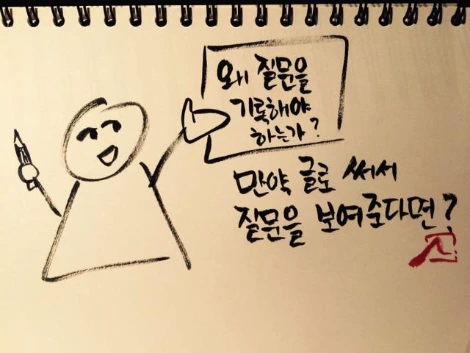 왜 질문을
기록해야
하는가?
만약 글로 써서
질문을 보여준다면?